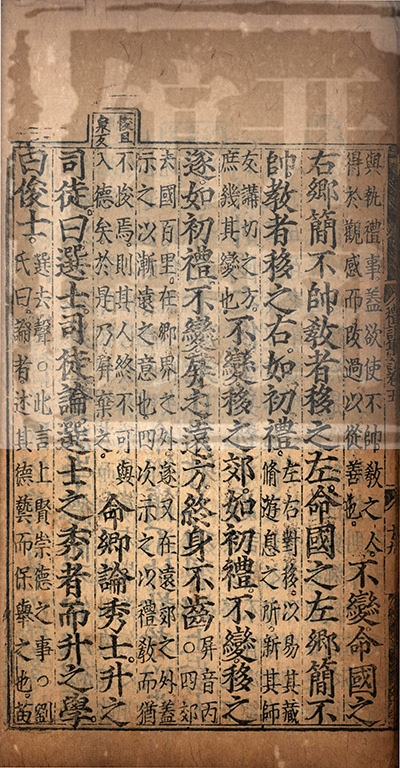 與執禮事蓋欲使不帥教之人。
得於觀感而改過以從善也。
不變命國之
右鄉簡不帥教者移之左。命國之左鄉簡不
帥教者移之右。如初禮。
左右對移。以易其藏
脩游息之所。新其師
友講切之方。
庶幾其變也。
不變移之郊。如初禮。不變。移之
遂。如初禮。不變。屏之遠方。終身不齒。
屏音丙
○四郊
去國百里。在鄉界之外。遂又在遠郊之外。蓋
示之以漸遠之意也。四次示之以禮教而猶
悛且
泉反
不悛焉。則其人終不可與
入德矣。於是乃屏棄之。
命鄉論秀士。升之
司徒。曰選士。司徒論選士之秀者而升之學。
曰俊士。
選去聲○此言上賢崇德之事○劉
氏曰。論者。述其德藝而保舉之也。苗